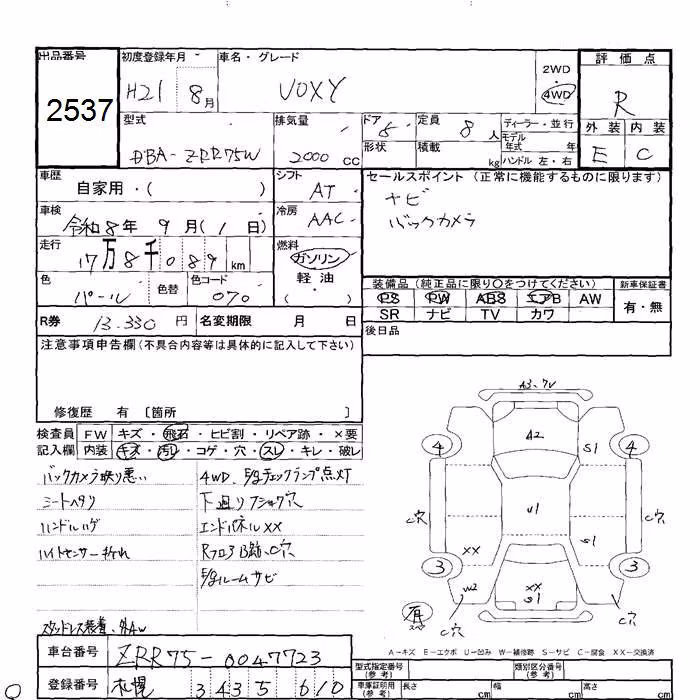 出品番号 初度登録年月 車名・グレード 2WD 評価点
2537 H21 8月 VOXY 4WD R
型式 排気量 ドア 定員 ディーラー・並行 外装 内装
DBA-ZRR75W 2000 cc 5 8人 モデル年式 年 E C
形状 積載 kg ハンドル 左・右
車歴 シフト セールスポイント(正常に機能するものに限ります)
自家用・( ) AT ナビ
車検 冷房 バックカメラ
令和8年 9月(1日) AAC
走行 燃料
17万8千089km ガソリン
軽油
( )
色 色替 色コード 装備品(純正品に限り○をつけてください) 新車保証書
パール 070 PS PW ABS エアB AW 有・無
SR ナビ TV カワ
R券 13.330円 名変期限 月 日 後日品
注意事項申告欄(不具合内容等は具体的に記入して下さい)
修復歴 有 [箇所 ]
検査員 FW キズ・飛石・ヒビ割・リペア跡・×要
記入欄 内装 キズ・汚レ・コゲ・穴・スレ・キレ・破レ
バックカメラ映り悪い 4WD.チェックランプ点灯
シートヘタリ 下廻り 穴
ハンドルハゲ エンドパネルXX
ライトセンサー折れ Rフロア C穴
ルームサビ
スタッドレス装着、外AW
A3.7V
A2 S1
4 4
U1
C穴 C穴
XX S1
3 3
W2 XX S1
有
C穴 C穴
A-キズ E-エクボ U-凹み W-補修跡 S-サビ C-腐食 XX-交換済
車台番号 ZRR75-0047723
型式指定番号(参考) 類別区分番号(参考)
登録番号 札幌 3435 610
車庫証明用(参考) 長さ cm 幅 cm 高さ cm